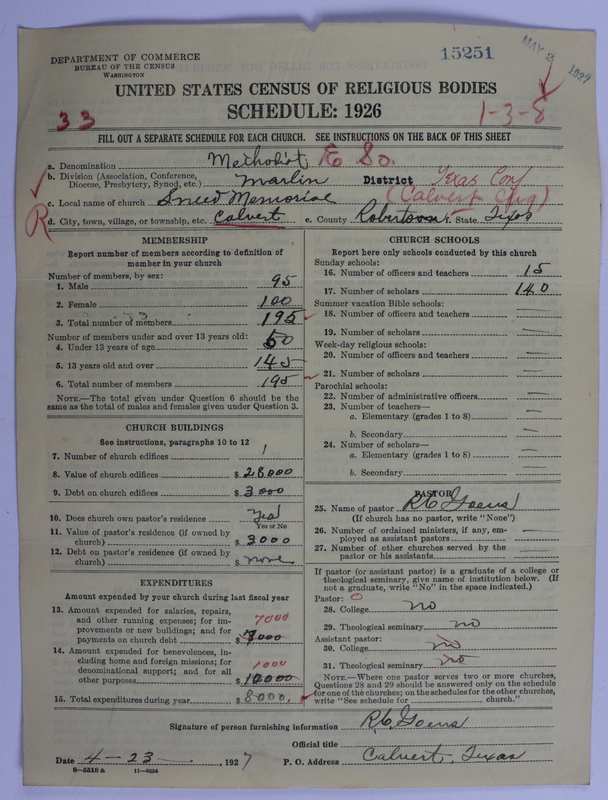 15251
MAY 3 1927
DEPARTMENT OF COMMERCE
BUREAU OF THE CENSUS
WASHINGTON
UNITED STATES CENSUS OF RELIGIOUS BODIES
SCHEDULE: 1926
33
1-3-8
FILL OUT A SEPARATE SCHEDULE FOR EACH CHURCH. SEE INSTRUCTIONS ON THE BACK OF THIS SHEET
a. Denomination Methodist E So.
b. Division (Association, Conference, Diocese, Presbytery, Synod, etc.) Marlin District Texas Conf
c. Local name of church Sneed Memorial (Calvert Chg)
R
d. City, town, village, or township, etc. Calvert e. County Robertson State Texas
MEMBERSHIP
Report number of members according to definition of
member in your church
Number of members, by sex:
1. Male 95
2. Female 100
3. Total number of members 195
Number of members under and over 13 years old:
4. Under 13 years of age 50
5. 13 years old and over 145
6. Total number of members 195
NOTE.—The total given under Question 6 should be
same as the total of males and females given under Question 3.
CHURCH BUILDINGS
See instructions, paragraphs 10 to 12
7. Number of church edifices 1
8. Value of church edifices $ 28000
9. Debt on church edifices $ 3000
10. Does church own pastor's residence Yes
Yes or No
11. Value of pastor's residence (if owned by
church) $ 3000
12. Debt on pastor's residence (if owned by
church) $ none
EXPENDITURES
Amount expended by your church during last fiscal year
13. Amount expended for salaries, repairs,
and other running expenses; for im-
provements or new buildings; and for
payments on church debt $ 7000 7000
14. Amount expended for benevolences, in-
cluding home and foreign missions; for
denominational support; and for all
other purposes $ 1000 10000
15. Total expenditures during year $ 8000.
CHURCH SCHOOLS
Report here only schools conducted by this church
Sunday schools:
16. Number of officers and teachers 15
17. Number of scholars 140
Summer vacation Bible schools:
18. Number of officers and teachers —
19. Number of scholars —
Week-day religious schools:
20. Number of officers and teachers —
21. Number of scholars —
Parochial schools:
22. Number of administrative officers —
23. Number of teachers—
a. Elementary (grades 1 to 8) —
b. Secondary —
24. Number of scholars—
a. Elementary (grades 1 to 8) —
b. Secondary —
PASTOR
25. Name of pastor R C Goens
(If church has no pastor, write "None")
26. Number of ordained ministers, if any, em-
ployed as assistant pastors —
27. Number of other churches served by the
pastor or his assistante —
If pastor (or assistant pastor) is a graduate of a college or
theological seminary, give name of institution below. (If
not a graduate, write "No" in the space indicated.)
Pastor: O
28. College no
29. Theological seminary no
Assistant pastor:
30. College no
31. Theological seminary no
NOTE.—Where one pastor serves two or more churches,
Questions 28 and 29 should be answered only on the schedule
for one of the churches; on the schedules for the other churches,
write "See schedule for church."
Signature of person furnishing information R C Goens
Official title
Date 4-23, 1927 P. O. Address Calvert, Texas
8—5518 a 11—9024